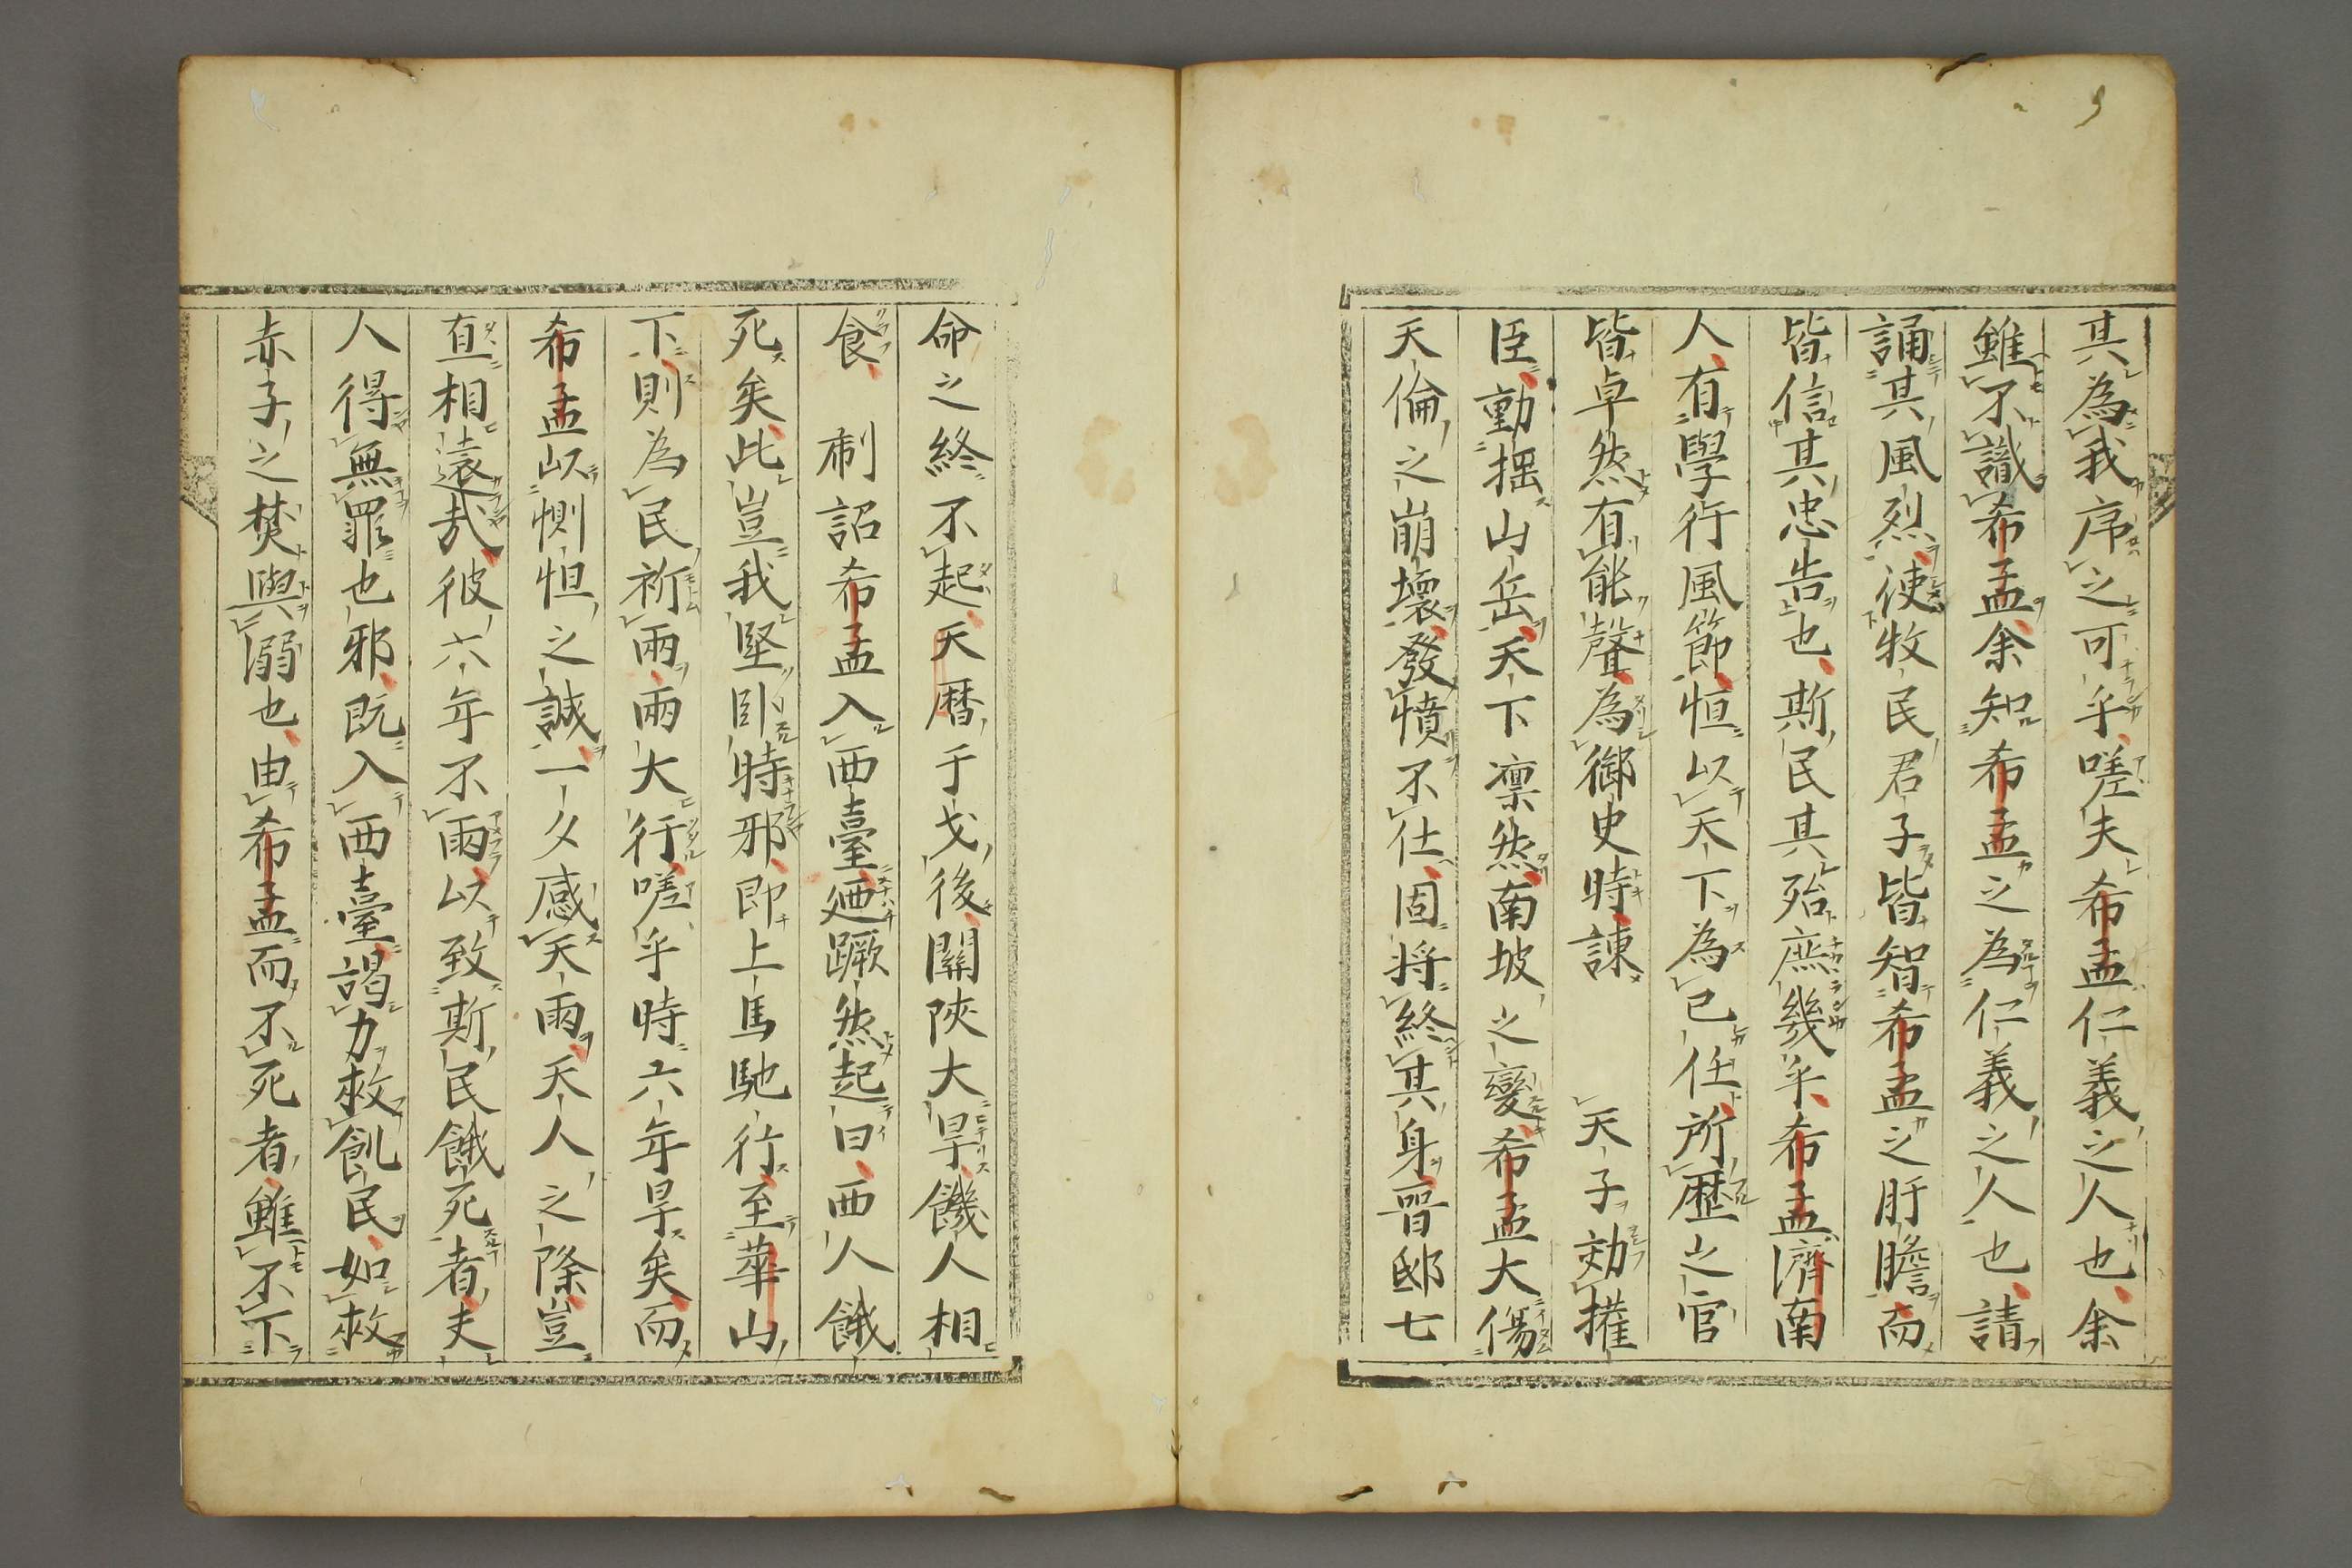 其為我序之可乎嗟夫希孟仁義之人也余
雖不識希孟余知希孟之為仁義之人也請
誦其風烈使牧民君子皆智希孟之肝膽而
皆信其忠告也斯民其殆庶幾乎希孟濟南
人有學行風節恒以天下為己任所歷之官
皆卓然有能聲為御史時諫　　天子効權
臣動揺山岳天下凛然南坡之變希孟大傷
天倫之崩壞發憤不仕固將終其身晋邸七
命之終不起天曆干戈後關陜大旱饑人相
食　制詔希孟入西臺廼蹶然起曰西人餓
死矣此豈我堅卧時邪即上馬馳行至華山
下則為民祈雨雨大行嗟乎時六年旱矣而
希孟以惻怛之誠一夕感天雨天人之際豈
直相遠哉彼六年不雨以致斯民餓死者夫
人得無罪也邪既入西臺謁力救飢民如救
赤子之焚與溺也由希孟而不死者雖不下